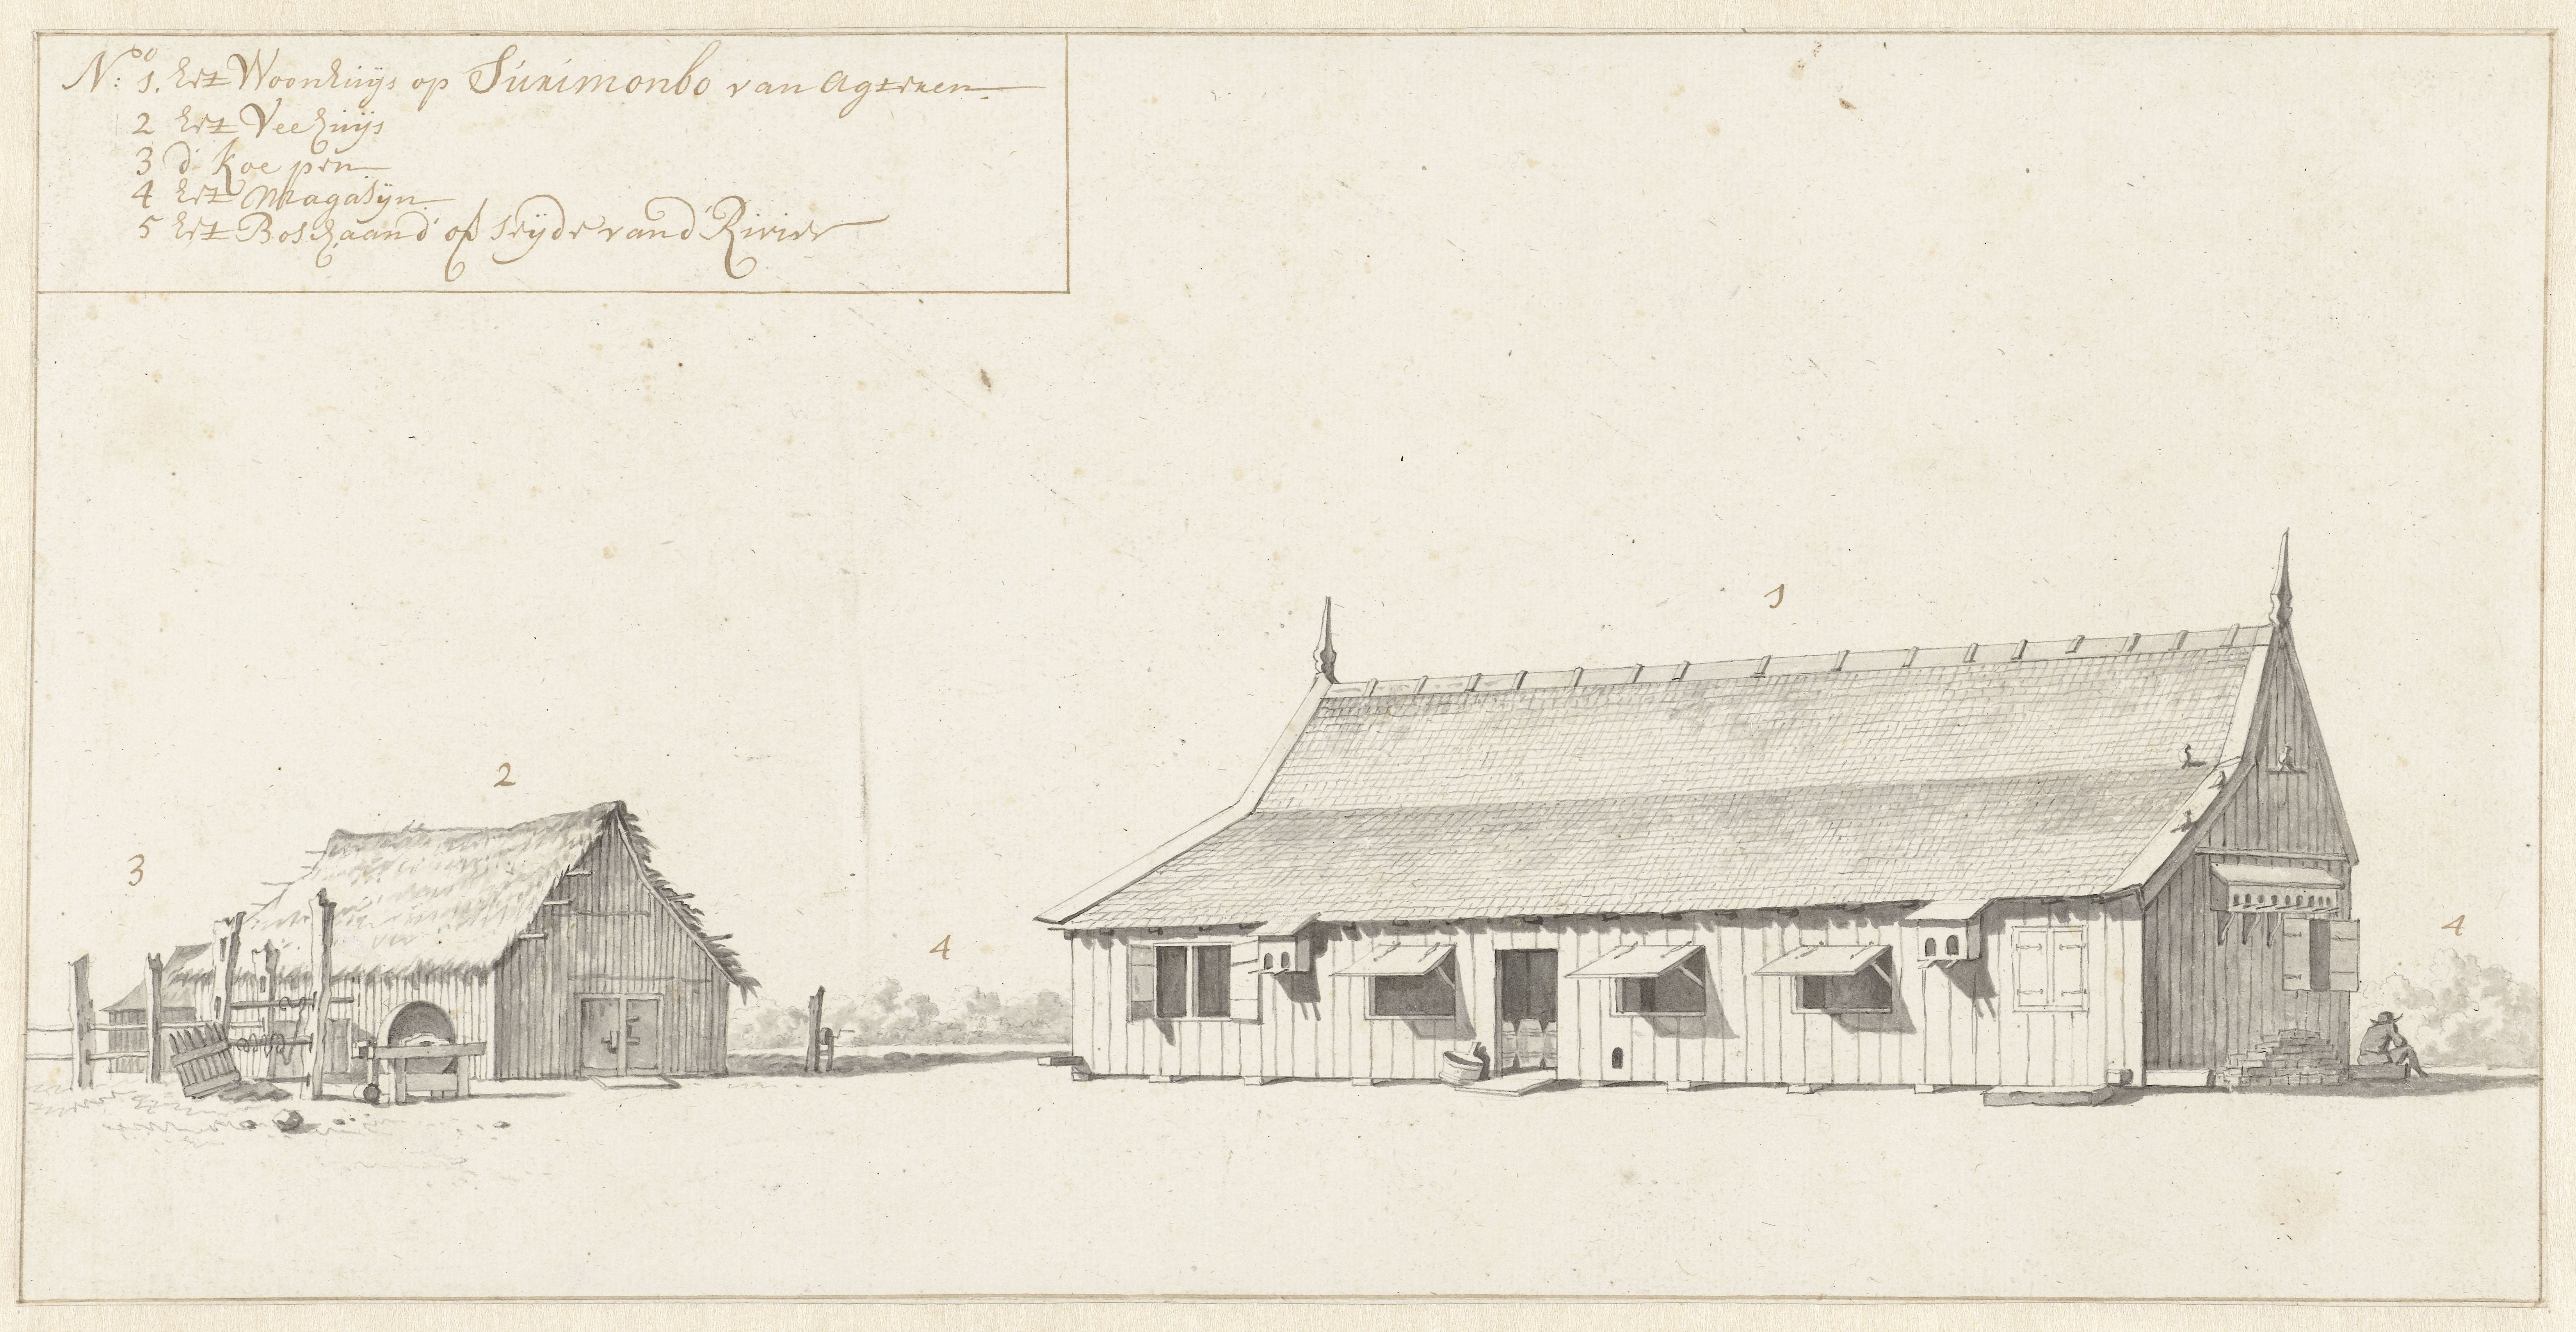 N:oo 1. het Woonhuijs op Surimonbo van agteren
2 het Veehuijs
3 d' koe pen
4 het Magasijn
5 het Bos aand' seijde vand' Rivier
1
2
3
4
4